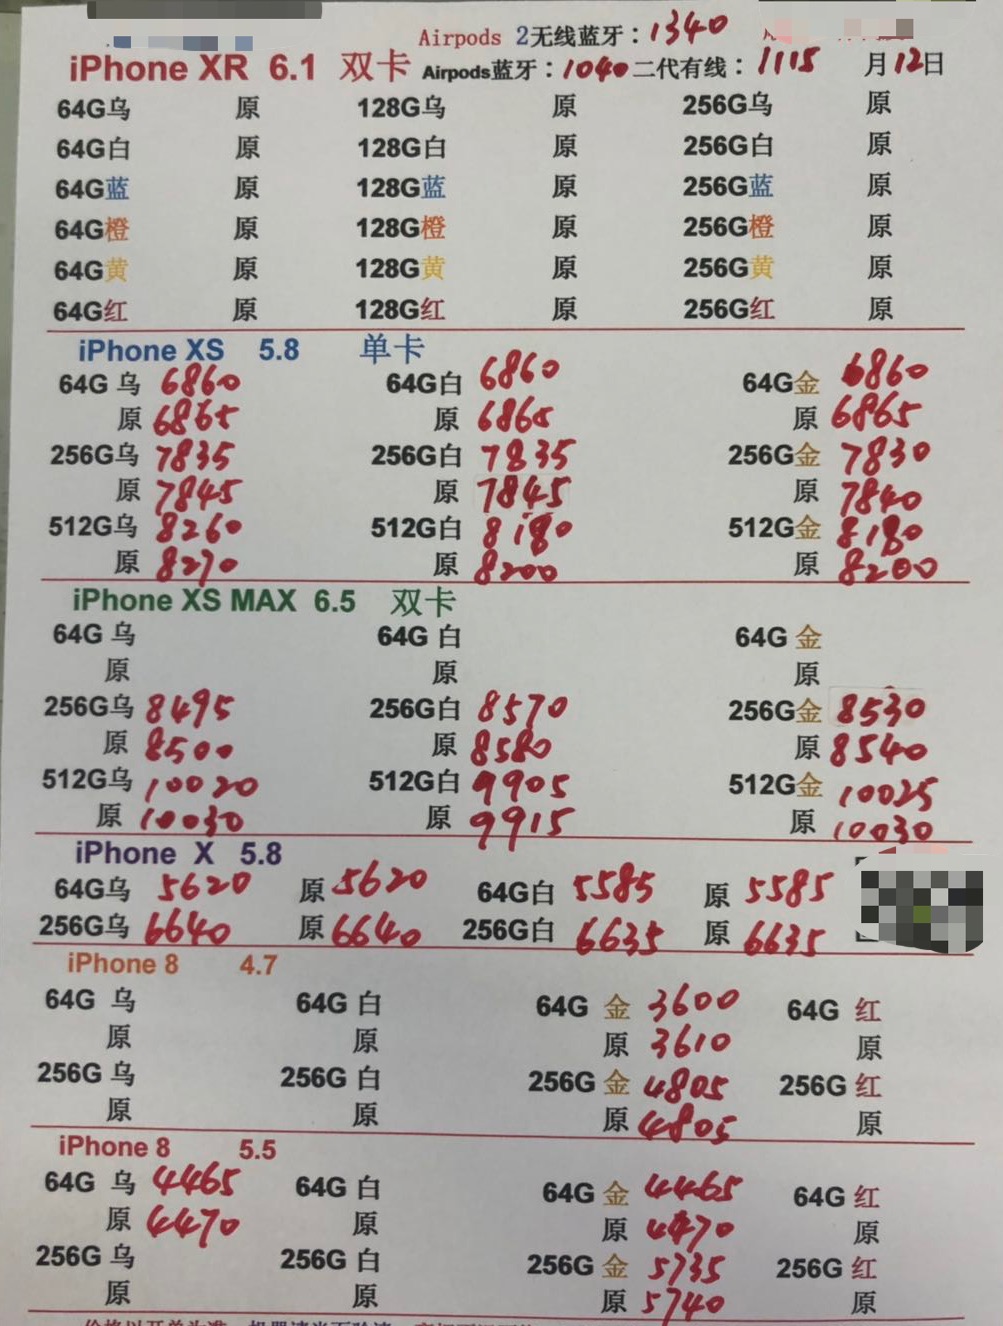 Airpods 2无线蓝牙：1340
iPhone XR 6.1 双卡 Airpods蓝牙：1040 二代有线：1115 月12日
64G乌 原 128G乌 原 256G乌 原
64G白 原 128G白 原 256G白 原
64G蓝 原 128G蓝 原 256G蓝 原
64G橙 原 128G橙 原 256G橙 原
64G黄 原 128G黄 原 256G黄 原
64G红 原 128G红 原 256G红 原
iPhone XS 5.8 单卡
64G 乌 6860 64G白 6860 64G金 6860
原 6865 原 6865 原 6865
256G乌 7835 256G白 7835 256G金 7830
原 7845 原 7845 原 7840
512G乌 8260 512G白 8180 512G金 8180
原 8270 原 8200 原 8200
iPhone XS MAX 6.5 双卡
64G 乌 64G 白 64G 金
原 原 原
256G乌 8495 256G白 8570 256G金 8530
原 8500 原 8580 原 8540
512G乌 10020 512G白 9905 512G金 10025
原 10030 原 9915 原 10030
iPhone X 5.8
64G乌 5620 原 5620 64G白 5585 原 5585
256G乌 6640 原 6640 256G白 6635 原 6635
iPhone 8 4.7
64G 乌 64G 白 64G 金 3600 64G 红
原 原 原 3610 原
256G 乌 256G 白 256G 金 4805 256G 红
原 原 原 4805 原
iPhone 8 5.5
64G 乌 4465 64G 白 64G 金 4465 64G 红
原 4470 原 原 4470 原
256G 乌 256G 白 256G 金 5735 256G 红
原 原 原 5740 原